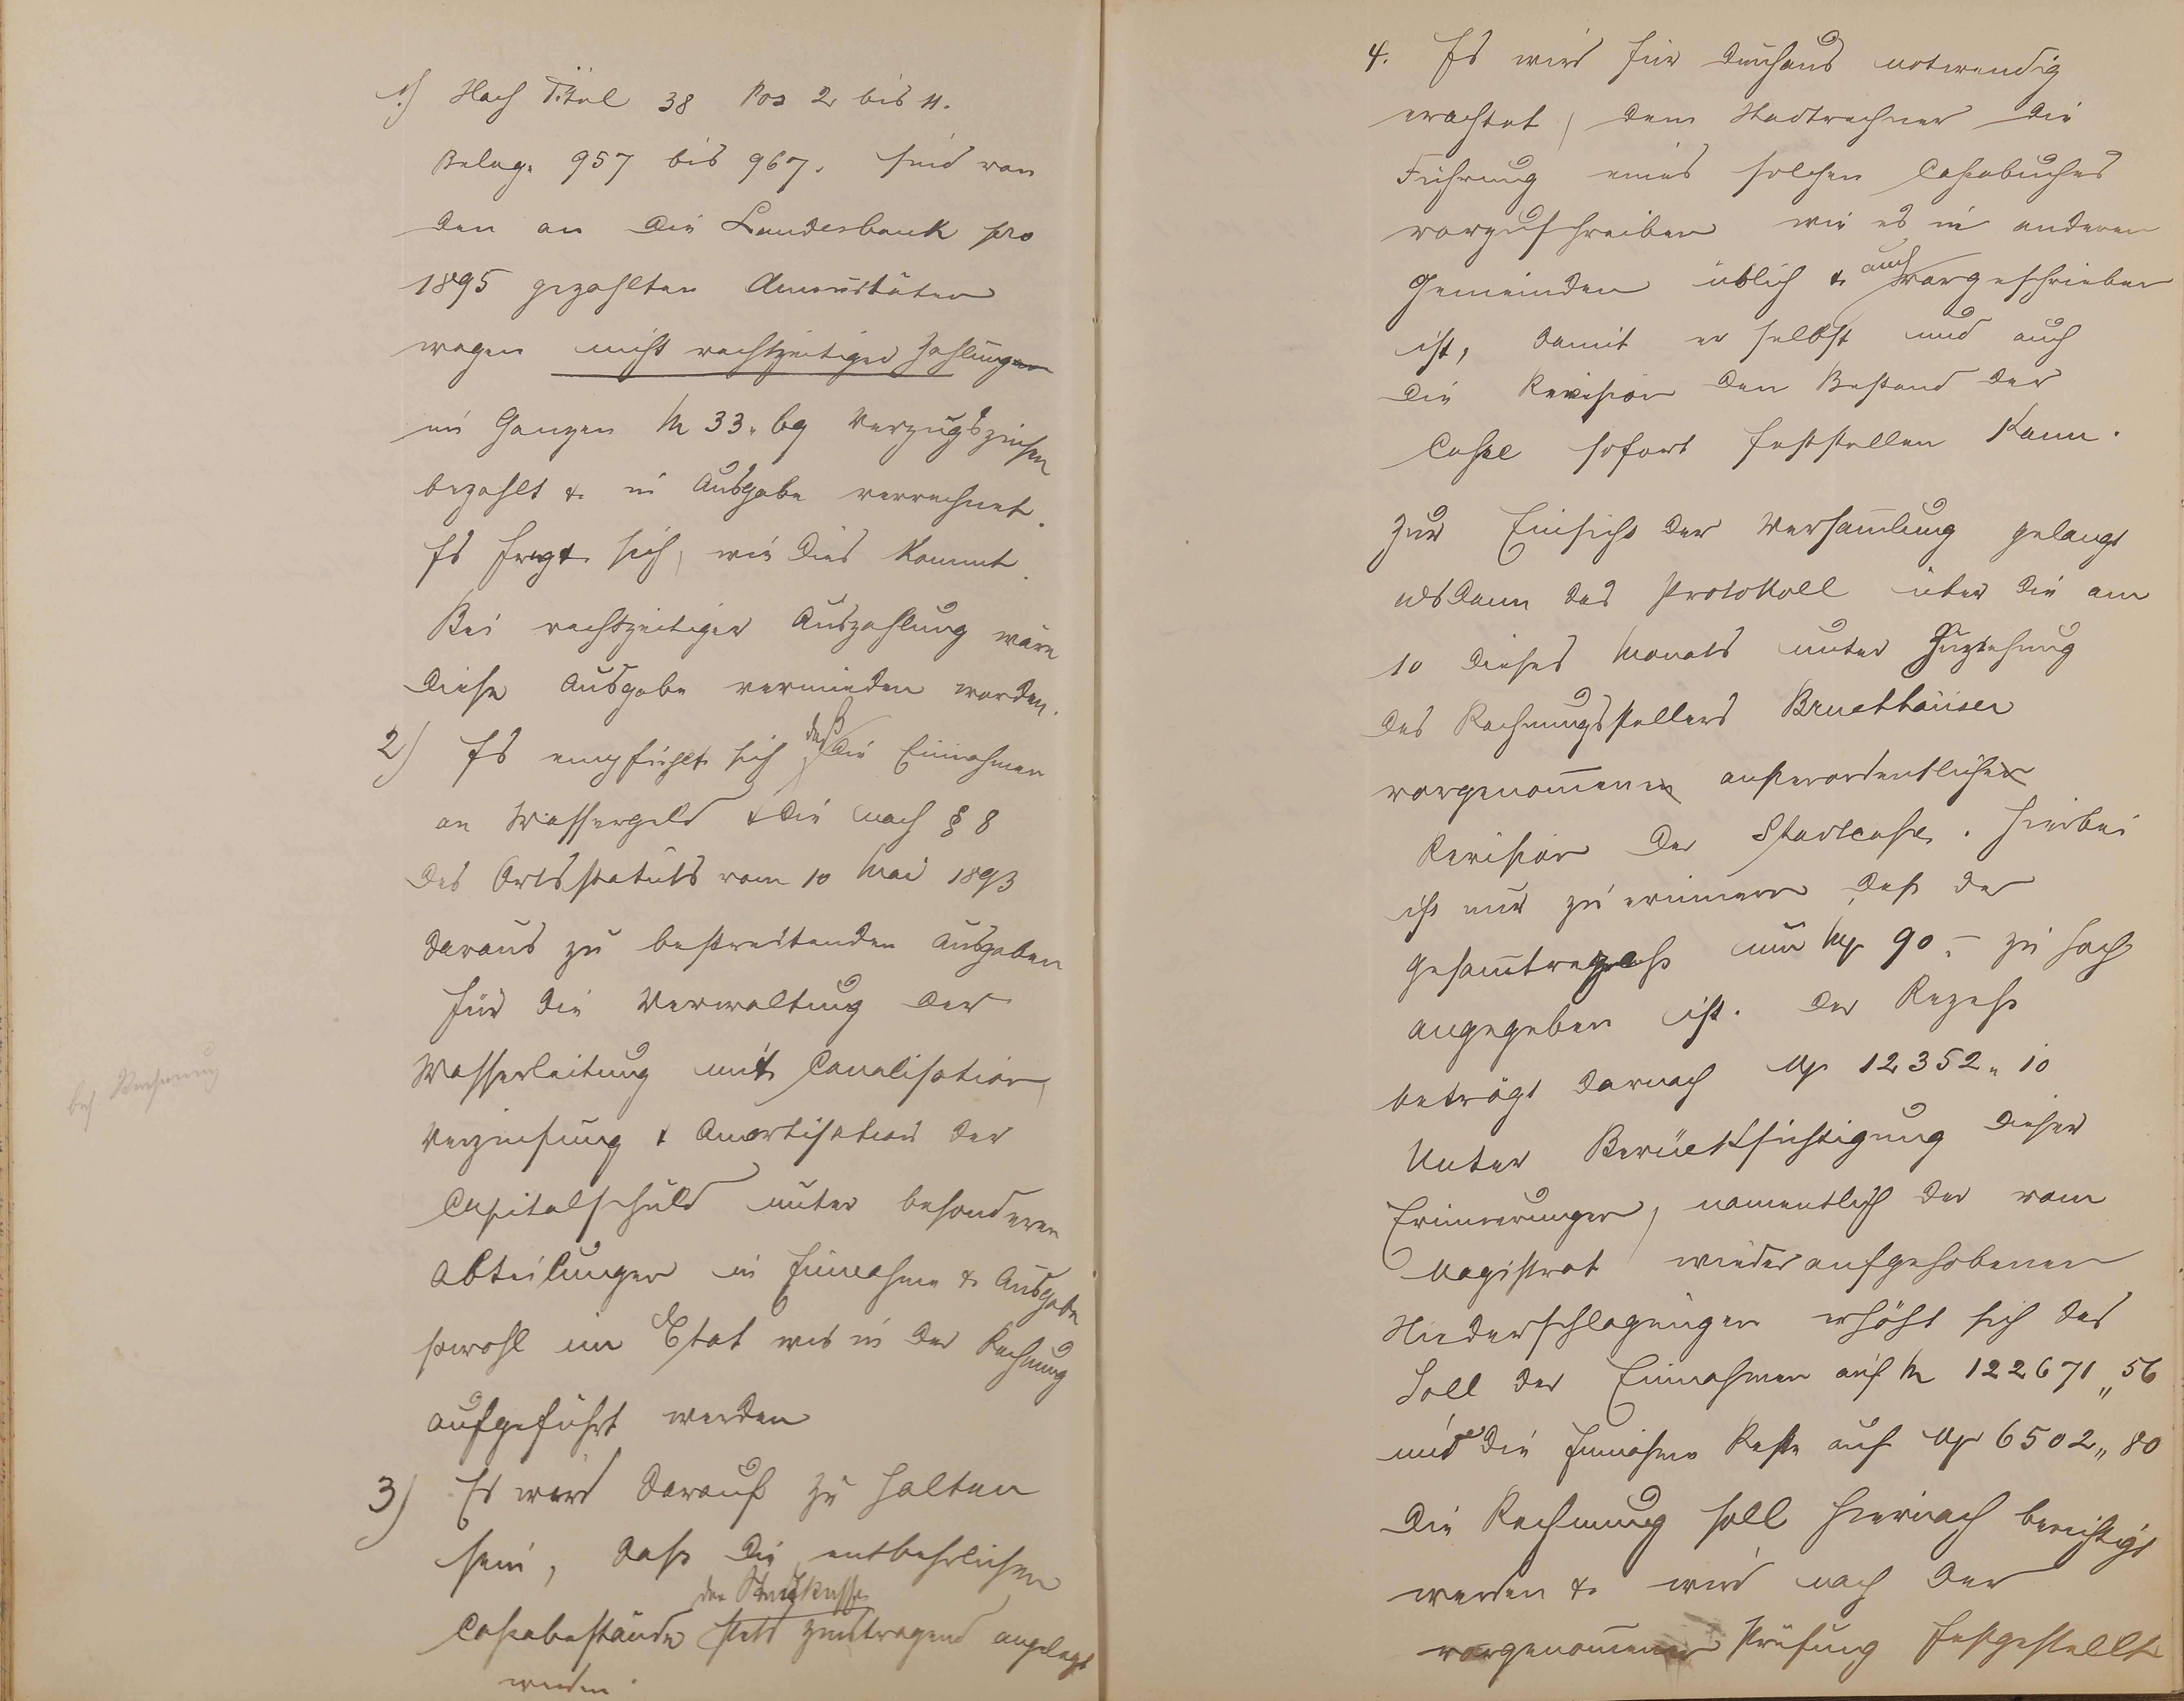 1.) Nach Titel 38 Pos 2 bis 11.
Belag. 957 bis 967. sind von
den an die Landesbank pro
1895 gezahlten Annuitäten
wegen nicht rechtzeitiger Zahlungen
im Ganzen M 33.69 Verzugszinsen
bezahlt & in Ausgabe verrechnet.
Es fragt sich, wie dies kommt.
Bei rechtzeitiger Auszahlung wäre
diese Ausgabe vermieden worden.
2) Es empfiehlt sich daß die Einnahmen
an Wassergeld & die nach § 8
des Ortsstatuts vom 10 Mai 1893
daraus zu bestreitenden Ausgaben
für die Verwaltung der
Wasserleitung mit Canalisation,
Verzinsung & Amortisation der
Capitalschuld unter besonderen
Abteilungen in Einnahme & Ausgabe
sowohl im Etat wie in der Rechnung
aufgeführt werden
bes. Rechnung
3) Es wird darauf zu halten
sein, dass die entbehrlichen
der Stadtkasse
Cassabestände stets zinstragend angelegt
werden.
4. Es wird für durchaus notwendig
erachtet, dem Stadtrechner die
Führung eines solchen Cassabuches
vorzuschreiben wie es in anderen
Gemeinden üblich & auch vorgeschrieben
ist, damit er selbst und auch
die Revision den Bestand der
Casse sofort feststellen kann.
Zur Einsicht der Versammlung gelangt
alsdann das Protokoll über die am
10 dieses Monats unter Zuziehung
des Rechnungsstellers Bruchhäuser
vorgenommenen außerordentlichen
Revision der Stadtcasse. Hierbei
ist nur zu erinnern, dass der
Gesamtrezess um Mk 90.- zu hoch
angegeben ist. Der Rezess
beträgt darnach Mk 12352.10
Unter Berücksichtigung dieser
Erinnerungen, namentlich der vom
Magistrat wieder aufgehobenen
Niederschlagungen erhöht sich das
Soll der Einnahmen auf M 122671,,56
und die Einnahme Reste auf Mk 6502,,80
Die Rechnung soll hiernach berichtigt
werden & wird nach der
vorgenommenen Prüfung festgestellt